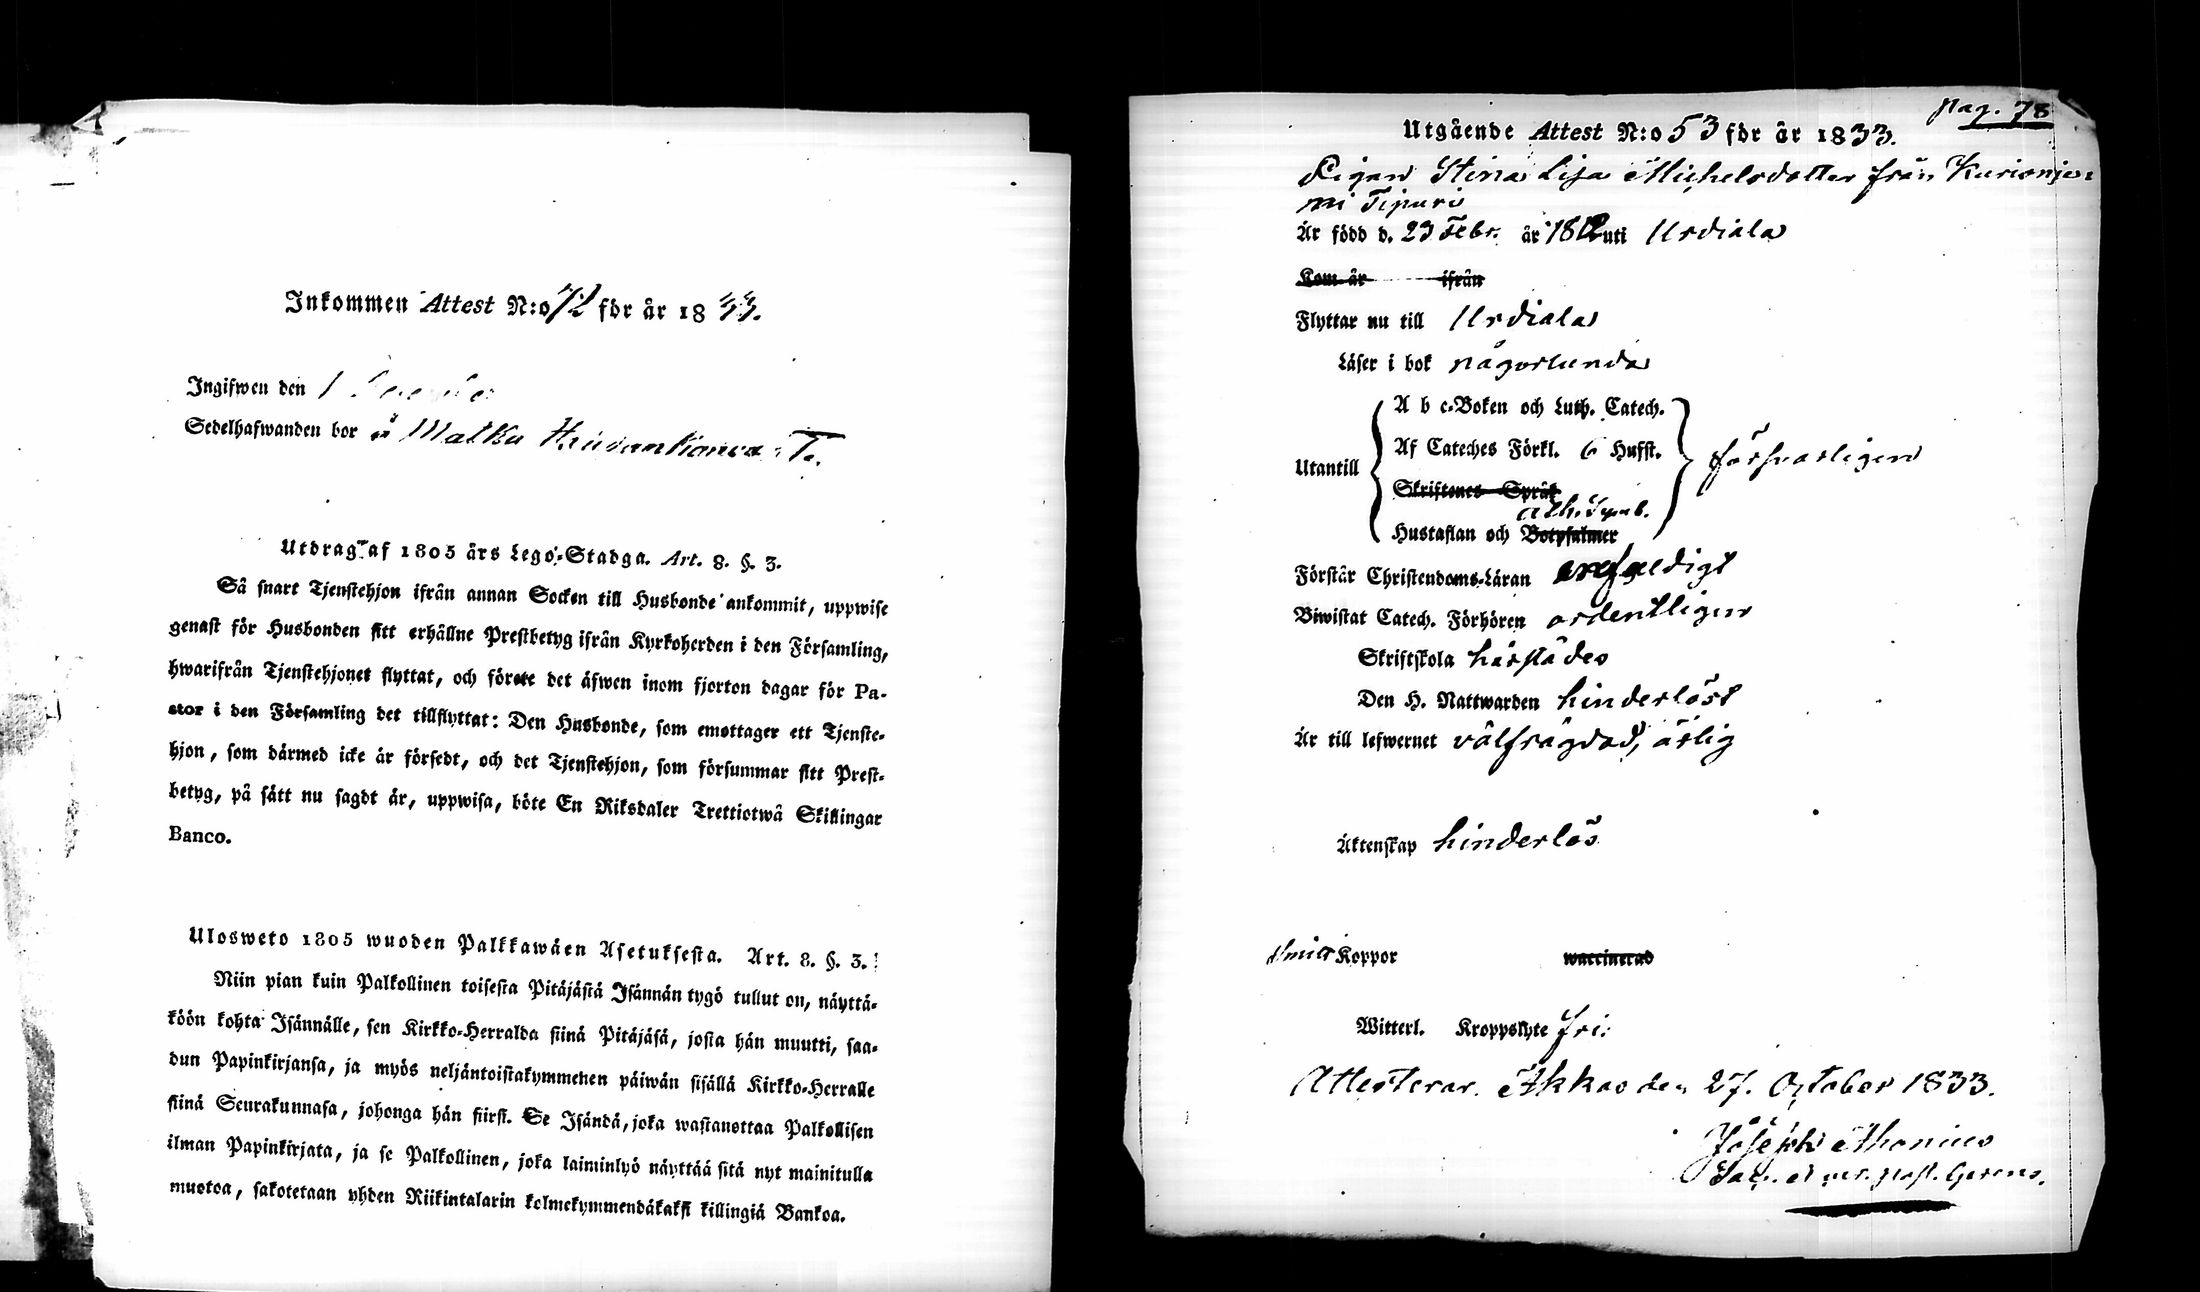 Inkommen Attest N:o 72 för år 1833.
Ingifwen den 1
Sedelhafwanden bor å Matku
Utdrag af 1805 års Lego-Stadga. Art. 8. §. 3.
Så snart Tjenstehjon ifrån annan Socken till Husbonde ankommit, uppwise
genast för Husbonden sitt erhållne Prestbetyg ifrån Kyrkoherden i den Församling,
hwarifrån Tjenstehjonet flyttat, och förete det äfwen inom fjorton dagar för Pa-
stor i den Församling det tillflyttat: Den Husbonde, som emottager ett Tjenste-
hjon, som därmed icke är försedt, och det Tjenstehjon, som försummar sitt Prest-
betyg, på sätt nu sagdt är, uppwisa, böte En Riksdaler Trettiotwå Skillingar
Banco.
Ulosweto 1805 wuoden Palkkawäen Asetuksesta. Art. 8. §. 3.
Niin pian kuin Palkollinen toisesta Pitäjästä Isännän tygö tullut on, näyttä-
köön kohta Isännälle, sen Kirkko-Herralda siinä Pitäjäsä, josta hän muutti, saa-
dun Papinkirjansa, ja myös neljäntoistakymmenen päiwän sisällä Kirkko-Herralle
siinä Seurakunnasa, johonga hän siirst. Se Isändä, joka wastanottaa Palkollisen
ilman Papinkirjata, ja se Palkollinen, joka laiminlyö näyttää sitä nyt mainitulla
muotoa, sakotetaan yhden Riikintalarin kolmekymmendäkaksi killingiä Bankoa.
pag. 78
Utgående Attest N:o 53 för år 1833.
Pigan Stina Lisa Michelsdotter från Kurionje
mi
Är född d. 23 Febr. år 1812 uti Urdiala
Kom år ifrån
Flyttar nu till Urdiala
Läser i bok någorlunda
A b c-Boken och Luth. Catech.
Af Cateches Förkl. 6 Hufst.
Utantill försvarligen
Skriftenes Språk
ath. Symb.
Hustaflan och Botpsalmer
Förstår Christendoms-Läran enfaldigt
Biwistat Catech. Förhören ordentligen
Skriftskola härstädes
Den H. Nattwarden hinderlöst
Är till lefwernet välfrägdad, ärlig
Äktenskap hinderlös
Koppor waccinerad
Witterl. Kroppslyte fri.
Attesterar. Akkas den 27. October 1833.
Joseph Monius
Sac. et past. Gerens.